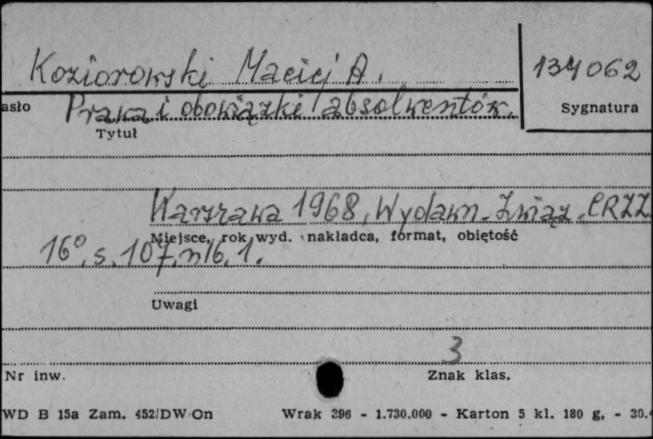 Koziorowski Maciej A.
134062
asło
Prawa i obowiązki absolwentów.
Sygnatura
Tytuł
Warszawa 1968, Wydawn. Związ. CRZZ
Miejsce, rok wyd. nakładca, format, objętość
16°, s. 107, nlb. 1.
Uwagi
3
Nr inw.
Znak klas.
WD B 15a Zam. 452/DW On
Wrak 396 - 1.730.000 - Karton 5 kl. 180 g. - 30.4